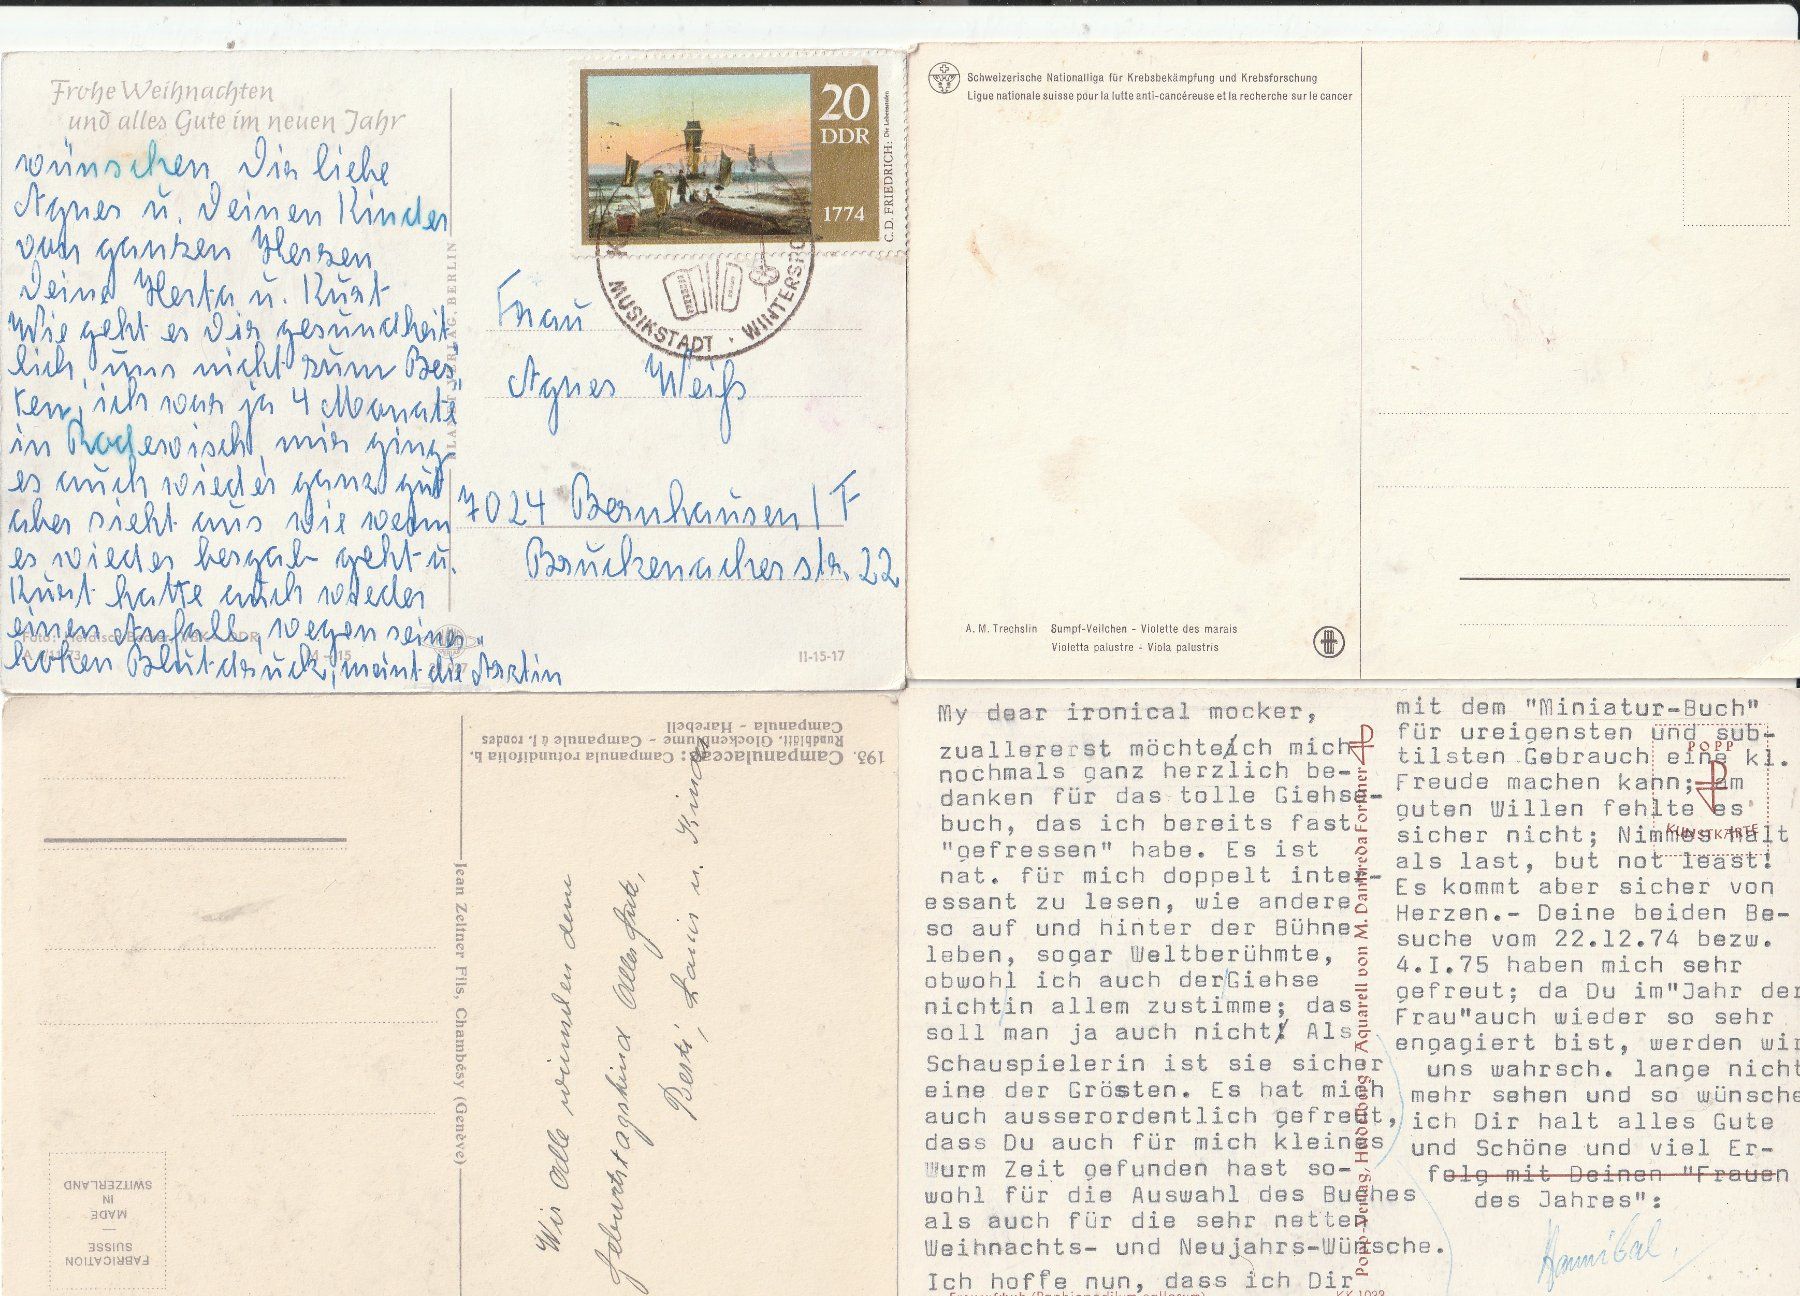 Frohe Weihnachten
und alles Gute im neuen Jahr
wünschen Dir liebe
Agnes u. Deinen Kinder
von ganzen Herzen
Deine Herta u. Kurt
Wie geht es Dir gesundheit
lich, uns nicht zum Bes
ten, ich war ja 4 Monate
in Rodewisch, mir ging
es auch wieder ganz gut
aber sieht aus wie wenn
es wieder bergab geht u.
Kurt hatte auch wieder
einen Anfall, wegen seines
hohen Blutdruck, meint die Ärztin
M 15
II-15-17
20
DDR
1774
C.D. FRIEDRICH: Die Lebensstufen
MUSIKSTADT · WINTERSPO
Frau
Agnes Weiß
7024 Bernhausen / F
Bruckenackerstr. 22
Schweizerische Nationalliga für Krebsbekämpfung und Krebsforschung
Ligue nationale suisse pour la lutte anti-cancéreuse et la recherche sur le cancer
A. M. Trechslin Sumpf-Veilchen - Violette des marais
Violetta palustre - Viola palustris
193. Campanulaceae: Campanula rotundifolia b.
Rundblätt. Glockenblume - Campanule à f. rondes
Campanula - Harebell
Jean Zeltner Fils, Chambésy (Genève)
FABRICATION
SUISSE
—
MADE
IN
SWITZERLAND
Wir Alle wünschen dem
Geburtstagskind Alles Gute,
u. Kinder
My dear ironical mocker,
zuallererst möchte ich mich
nochmals ganz herzlich be-
danken für das tolle Giehse-
buch, das ich bereits fast
"gefressen" habe. Es ist
nat. für mich doppelt inter-
essant zu lesen, wie andere
so auf und hinter der Bühne
leben, sogar Weltberühmte,
obwohl ich auch derGiehse
nichtin allem zustimme; das
soll man ja auch nicht! Als
Schauspielerin ist sie sicher
eine der Grösten. Es hat mich
auch ausserordentlich gefreut,
dass Du auch für mich kleines
Wurm Zeit gefunden hast so-
wohl für die Auswahl des Buches
als auch für die sehr netten
Weihnachts- und Neujahrs-Wünsche.
Ich hoffe nun, dass ich Dir
mit dem "Miniatur-Buch"
für ureigensten und sub-
tilsten Gebrauch eine kl.
Freude machen kann; am
guten Willen fehlte es
sicher nicht; Nimmes halt
als last, but not least!
Es kommt aber sicher von
Herzen.- Deine beiden Be-
suche vom 22.12.74 bezw.
4.I.75 haben mich sehr
gefreut; da Du im"Jahr der
Frau"auch wieder so sehr
engagiert bist, werden wir
uns wahrsch. lange nicht
mehr sehen und so wünsche
ich Dir halt alles Gute
und Schöne und viel Er-
folg mit Deinen "Frauen
des Jahres":
Hannibal.
POPP
KUNSTKARTE
Popp-Verlag, Heidelberg Aquarell von M. Daufreda Fortner